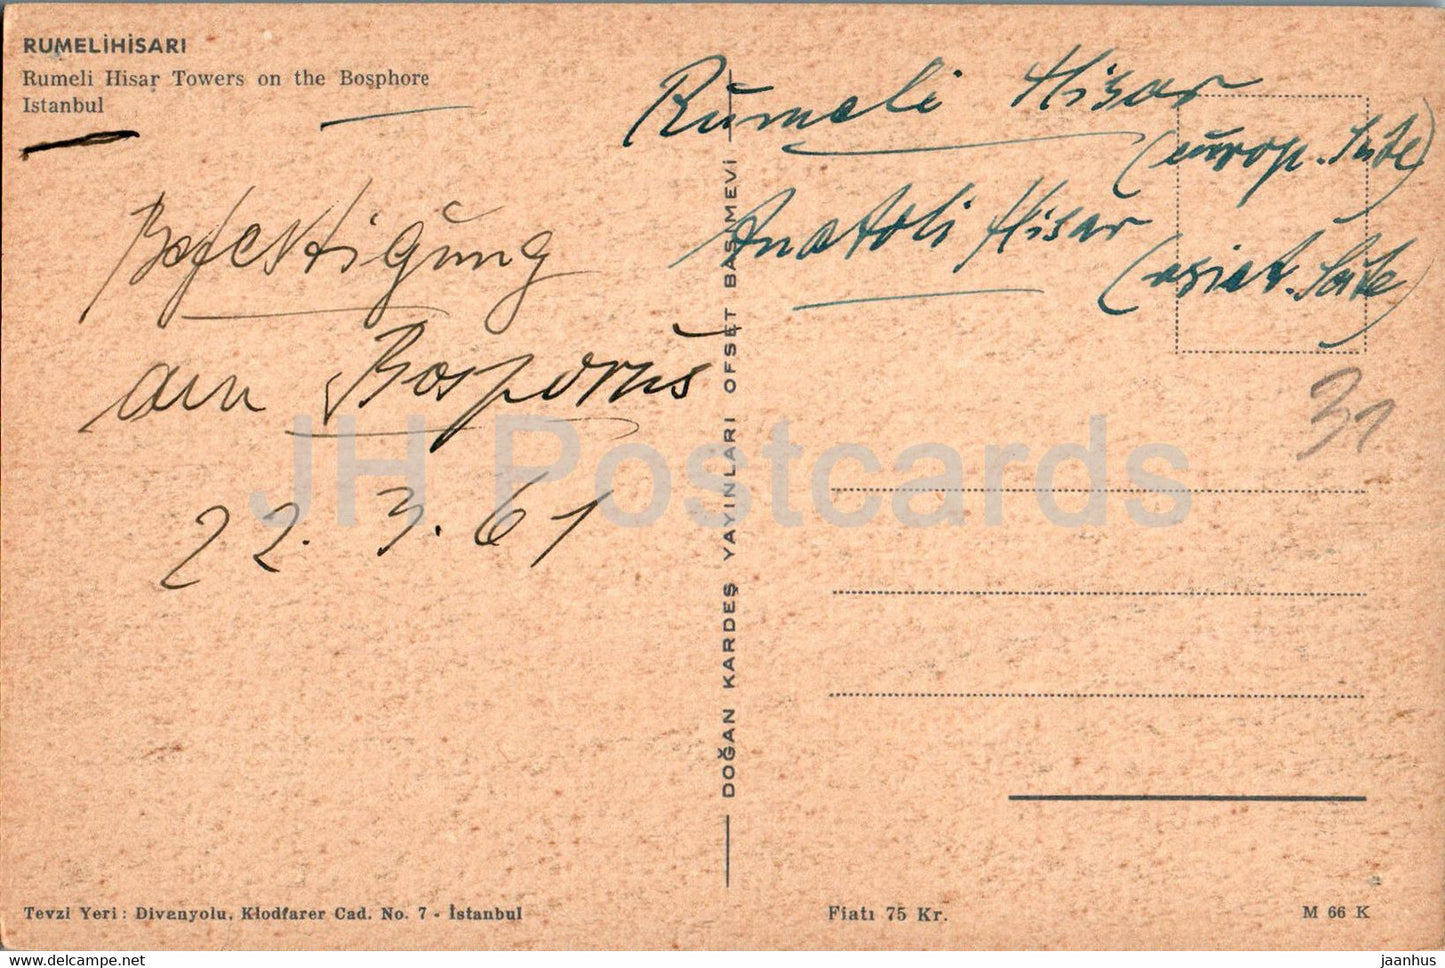 RUMELİHİSARI
Rumeli Hisar Towers on the Bosphore
Istanbul
Befestigung
am Bosporus
22. 3. 61
Rumeli Hisar
(europ. Seite)
Anatoli Hisar
(asiat. Seite)
31
DOĞAN KARDEŞ YAYINLARI OFSET BASIMEVİ
JH Postcards
Tevzi Yeri : Divanyolu, Klodfarer Cad. No. 7 - İstanbul
Fiatı 75 Kr.
M 66 K
jaanhus